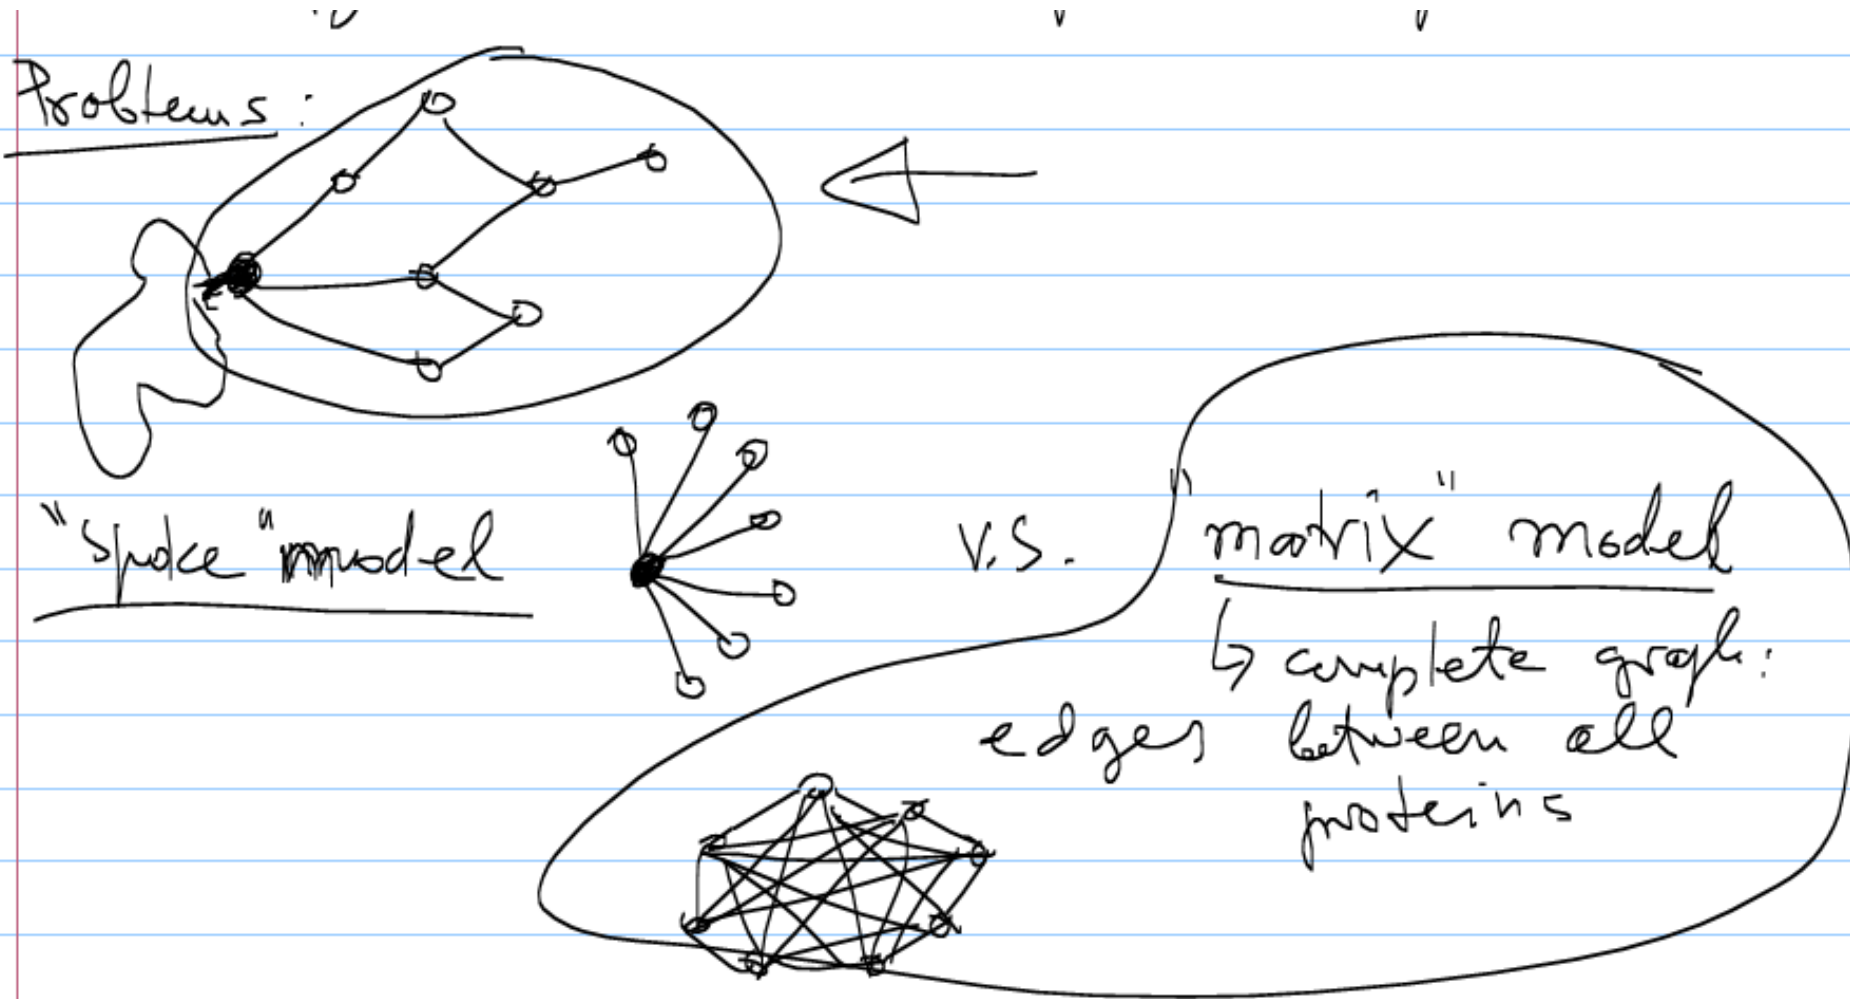 Problems:
"spoke" model v.s. "matrix" model
↳ complete graph:
edges between all
proteins